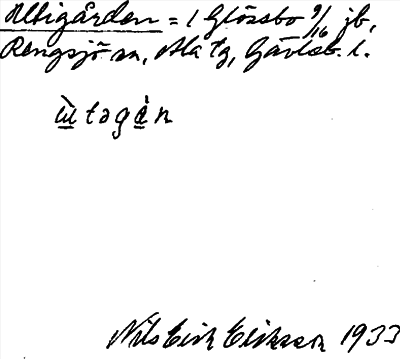 Uttigården = 1 Glössbo 9/16 jb,
Rengsjö sn, Ala tg, Gävleb. l.
ùtagàn
Nils Eirik Erikson 1933